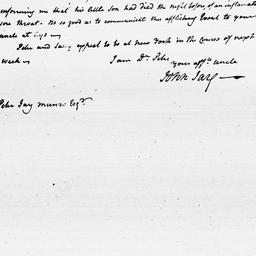 informing me that his little son had died the night before, of an inflamatory
sore throat. Be so good as to communicate this afflicting Event to your
uncle at
Peter and Sally expect to be at New York in the Course of next
week—
I am Dr. Peter
your affte. uncle
John Jay—
Peter Jay Munro Esqr.